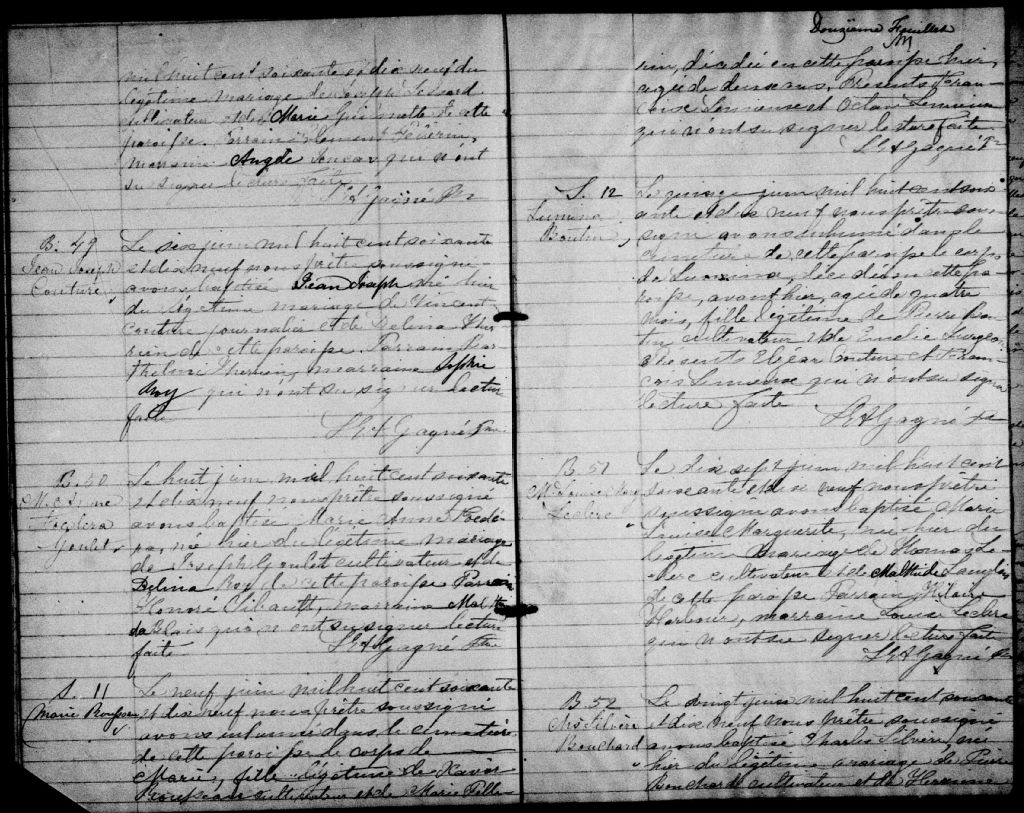 mil huit cent soixante et dix neuf du
légitime mariage de Lessard
cultivateur et de Marie de cette
paroisse. Parrain Clément
marraine Angèle qui n'ont
su signer lecture faite
Gagné Ptr
B. 49
Jean Joseph
Couture
Le six juin mil huit cent soixante
et dix neuf nous prêtre soussigné
avons baptisé Jean Joseph né hier
du légitime mariage de Vincent
Couture journalier et de Delina Ther
rien de cette paroisse. Parrain Bar
thelemi Therrien, marraine Sophie
Roy qui n'ont su signer lecture
faite
L E A Gagné Ptr
B. 50
M. Anne
Goulet
Le huit juin mil huit cent soixante
et dix neuf nous prêtre soussigné
avons baptisé Marie Anne
née hier du légitime mariage
de Joseph Goulet cultivateur et de
Delina Roy de cette paroisse Parrain
Honoré Thibault, marraine Mathil
da Blais qui n'ont su signer lecture
faite
L E A Gagné Ptr
S. 11
Marie Rousseau
Le neuf juin mil huit cent soixante
et dix neuf nous prêtre soussigné
avons inhumé dans le cimetière
de cette paroisse le corps de
Marie, fille légitime de Xavier
Rousseau cultivateur et de Marie
Douzième Feuillet
décédée en cette paroisse hier,
agée de deux ans, Présents Fran
cois Lemieux et Octave Lemieux
qui n'ont su signer lecture faite
L E A Gagné Ptr
S. 12
Lumina
Boulin
Le quinze juin mil huit cent soix
ante et dix neuf nous prêtre sous
signé avons inhumé dans le
cimetière de cette paroisse le corps
de Lumina décédée en cette pa
roisse, avant hier, agée de quatre
mois, fille légitime de Pierre Bou
lin cultivateur et de Emelie
Présents Elzear Couture et Fran
cois Lemieux qui n'ont su signer
lecture faite
L E A Gagné Ptr
B. 51
Me Louise Marg
Leclerc
Le dix sept juin mil huit cent
soixante et dix neuf nous prêtre
soussigné avons baptisé Marie
Louise Marguerite, née hier du
légitime mariage de Thomas Le
clerc cultivateur et de Mathilde
de cette paroisse Parrain Hilaire
Harbour, marraine Louise Leclerc
qui n'ont su signer lecture faite
L E A Gagné Ptr
B. 52
Chs Silvère
Bouchard
Le vingt juin mil huit cent soixante
et dix neuf nous prêtre soussigné
avons baptisé Charles Silvère, né
hier du légitime mariage de Pierre
Bouchard cultivateur et de